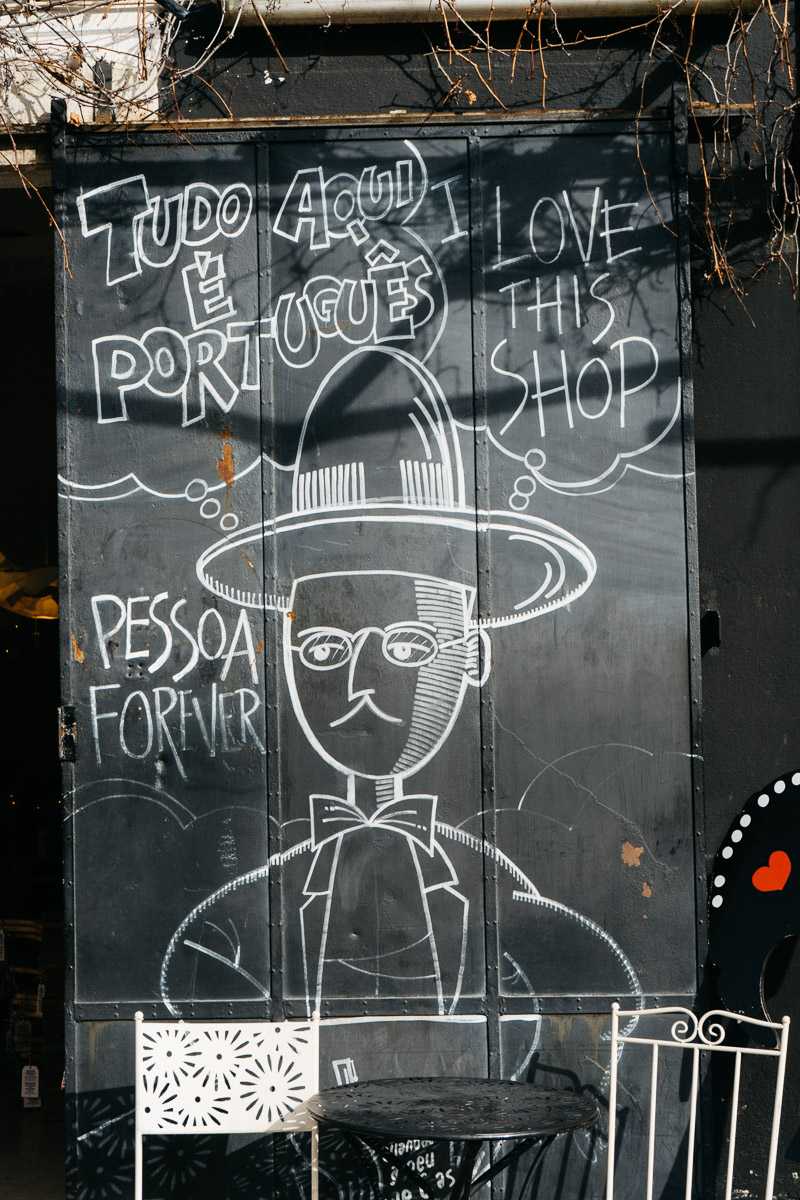 TUDO AQUI
É
PORTUGUÊS
I LOVE
THIS
SHOP
PESSOA
FOREVER